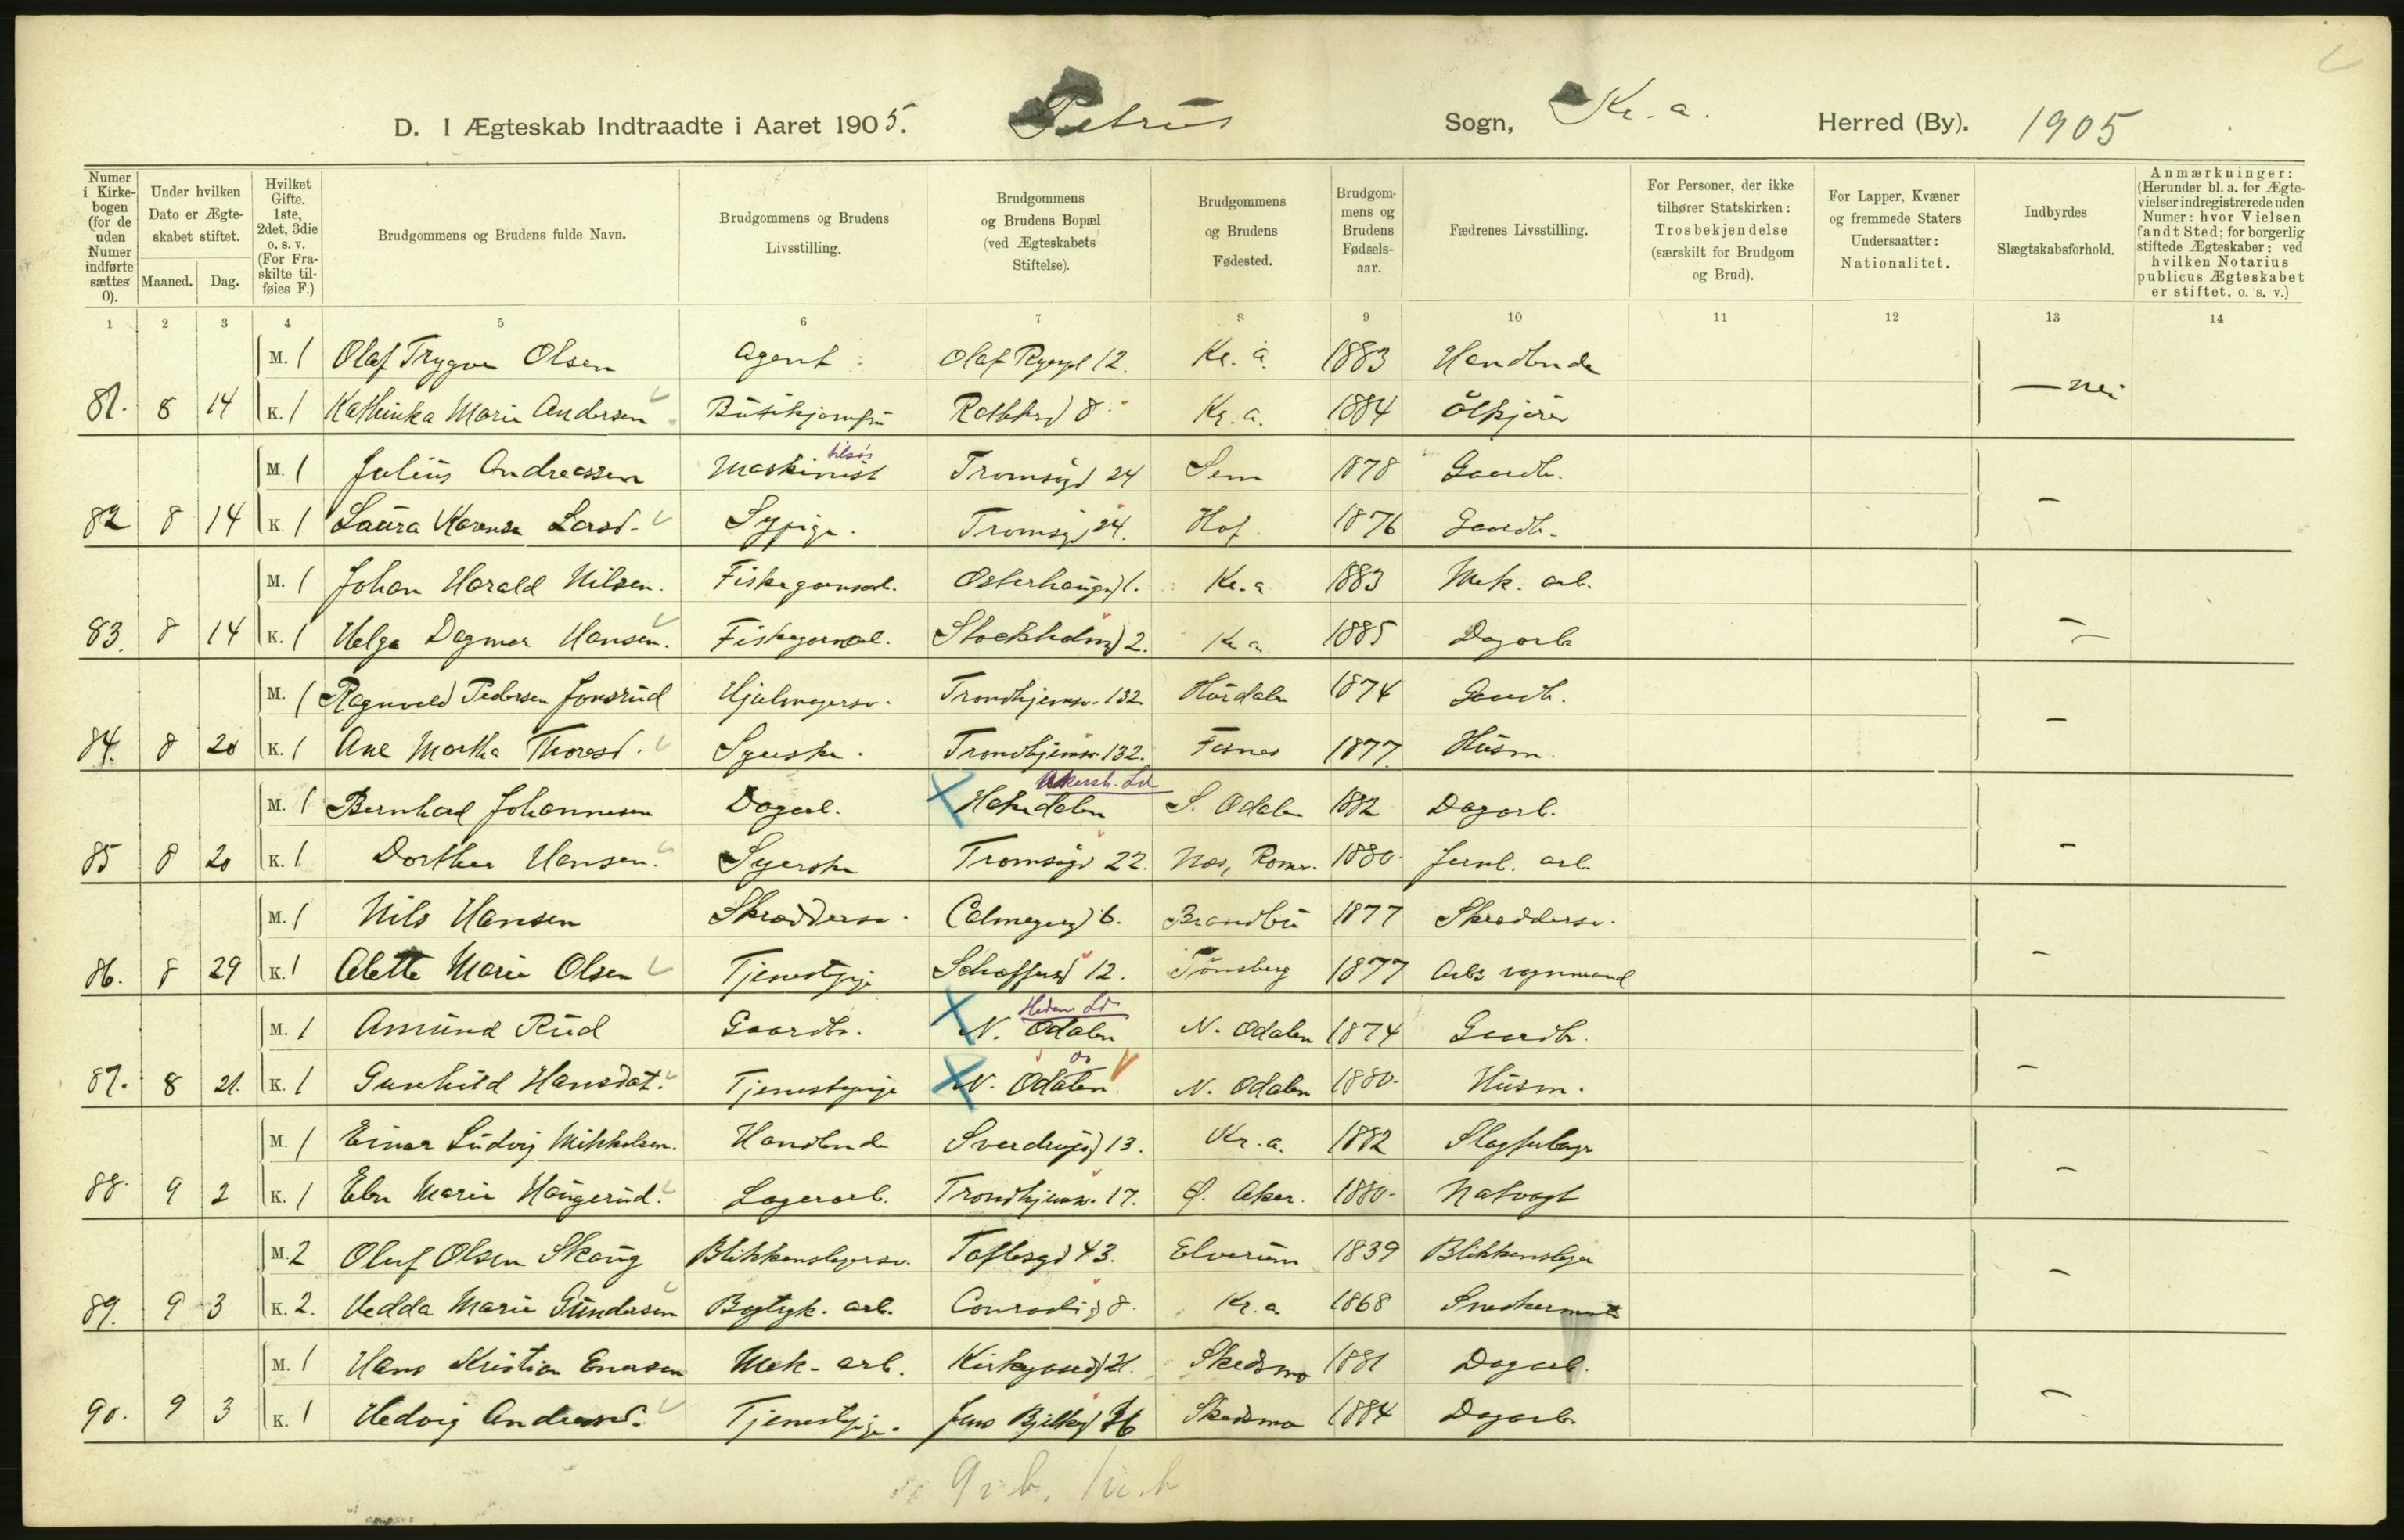 D. I Ægteskab Indtraadte i Aaret 1905. Petrus Sogn, Kr. a. Herred (By). 1905
Numer i Kirkebogen (for de uden Numer indførte sættes 0).
Under hvilken Dato er Ægteskabet stiftet.
Maaned. Dag.
Hvilket Gifte. 1ste, 2det, 3die o. s. v. (For Fraskilte tilføies F.)
Brudgommens og Brudens fulde Navn.
Brudgommens og Brudens Livsstilling.
Brudgommens og Brudens Bopæl (ved Ægteskabets Stiftelse).
Brudgommens og Brudens Fødested.
Brudgommens og Brudens Fødselsaar.
Fædrenes Livsstilling.
For Personer, der ikke tilhører Statskirken: Trosbekjendelse (særskilt for Brudgom og Brud).
For Lapper, Kvæner og fremmede Staters Undersaatter: Nationalitet.
Indbyrdes Slægtskabsforhold.
Anmærkninger: (Herunder bl. a. for Ægtevielser indregistrerede uden Numer: hvor Vielsen fandt Sted; for borgerlig stiftede Ægteskaber: ved hvilken Notarius publicus Ægteskabet er stiftet, o. s. v.)
1 2 3 4 5 6 7 8 9 10 11 12 13 14
M. 1 Olaf Trygve Olsen Agent Olaf Ryespl 12. Kr. a. 1883 Handlende
81. 8 14 K. 1 Kathinka Marie Andersen Butikjomfru 8 Kr. a. 1884 Ølkjører — nei
tilsøs
M. 1 Julius Andreassen Maskinist Tromsøgd 24 Sem 1878 Gaardb.
82 8 14 K. 1 Laura Karense Larsd. Sypige. Tromsøgd 24. Hof 1876 Gaardb. —
M. 1 Johan Harald Nilsen. Fiskegarnsarb. Osterhausgd 1. Kr. a 1883 Mek. arb.
83. 8 14 K. 1 Helga Dagmar Hansen. Fiskegarnarb. Stockholmgd 2. Kr. a 1885 Dagarb —
M. 1 Ragnvald Pedersen Jonsrud Hjulmagersv. Trondhjemsv. 132 Hurdalen 1874 Gaardb.
84. 8 20 K. 1 Ane Martha Thoresd. Syerske. Trondhjemsv. 132. Fosnes 1877. Husm. —
Akersh. Ld
M. 1 Bernhard Johannesen Dagarb. Hakedalen S. Odalen 1882 Dagarb.
85 8 20 K. 1 Dorthea Hansen. Syerske Tromsøgd 22. Nes, Romr. 1880. Jernb. arb. —
M. 1 Nils Hansen Skræddersv. Calmeyergd 6. Brandbu 1877 Skræddersv.
86. 8 29 K. 1 Alette Marie Olsen Tjenestpige Schaffersgd 12. Tønsberg 1877 Arb. vognmand —
Hedem. Ld
M. 1 Amund Rud Gaardbr. N. Odalen N. Odalen 1874 Gaardbr.
do
87. 8 21. K. 1 Gunhild Hansdat. Tjenestepige N. Odalen. N. Odalen 1880. Husm. —
M. 1 Einar Ludvig Mikkelsen. Handlende Sverdrupsgd 13. Kr. a. 1882
88. 9 2 K. 1 Elen Marie Haugerud. Lagerarb. Trondhjemsv. 17. Ø. Aker. 1880. Natvagt —
M. 2 Oluf Olsen Skaug Blikkenslagersv. Toftesgd 43. Elverum 1839 Blikkenslager
89. 9 3 K. 2. Hedda Marie Gundersen Bogtryk. arb. Conradisgd 8. Kr. a. 1868 Snedkermest —
M. 1 Hans Kristian Enersen Mek. arb. Kirkegaardsgd 21. Skedsmo 1881 Dagarb.
90. 9 3 K. 1 Hedvig Andersd. Tjenestpige. Jens Bjelkesgd 36 Skedsmo 1884 Dagarb —